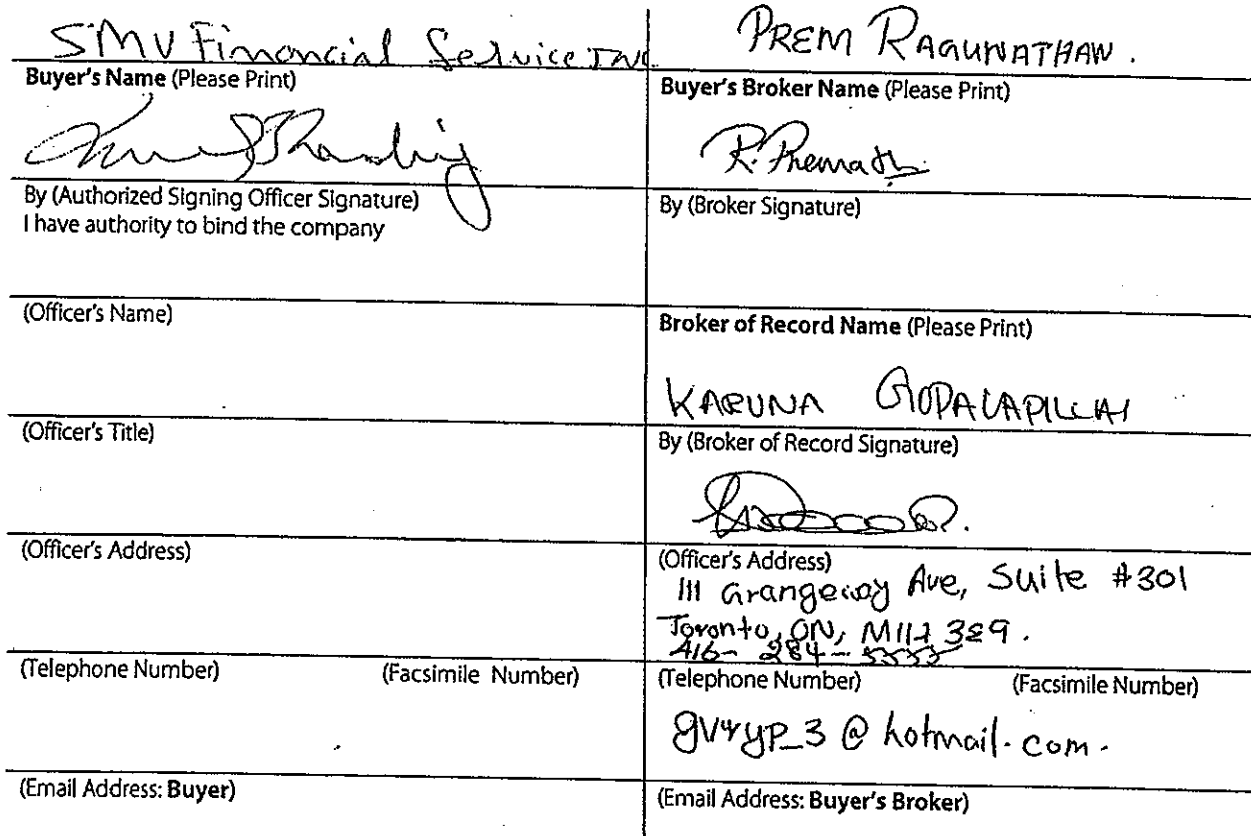 SMV Financial Service INC
Buyer's Name (Please Print)
By (Authorized Signing Officer Signature)
I have authority to bind the company
(Officer's Name)
(Officer's Title)
(Officer's Address)
(Telephone Number) (Facsimile Number)
(Email Address: Buyer)
PREM RAGUNATHAN.
Buyer's Broker Name (Please Print)
R. Premath
By (Broker Signature)
Broker of Record Name (Please Print)
KARUNA GOPALAPILLAI
By (Broker of Record Signature)
(Officer's Address)
111 Grangeway Ave, Suite #301
Toronto, ON, M1H 3E9.
416-284-5555
(Telephone Number) (Facsimile Number)
@hotmail.com.
(Email Address: Buyer's Broker)